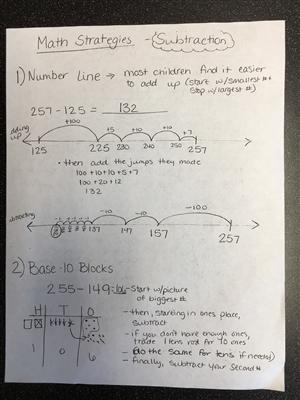 Math Strategies - Subtraction
1) Number Line → most children find it easier
to add up (start w/smallest #+
stop w/largest #)
257 - 125 = 132
adding up
+100 +5 +10 +10 +7
125 225 230 240 250 257
• then add the jumps they made
100+10+10+5+7
100+20+12
132
subtracting
-1 -1 -1 -1 -1 -10 -10 -100
137 147 157 257
2) Base-10 Blocks
255-149= - start w/picture
of biggest #
H T O
- then, starting in ones place,
subtract
- if you don't have enough ones,
trade 1 tens rod for 10 ones
- (do the same for tens if needed)
- finally, subtract your second #
1 0 6